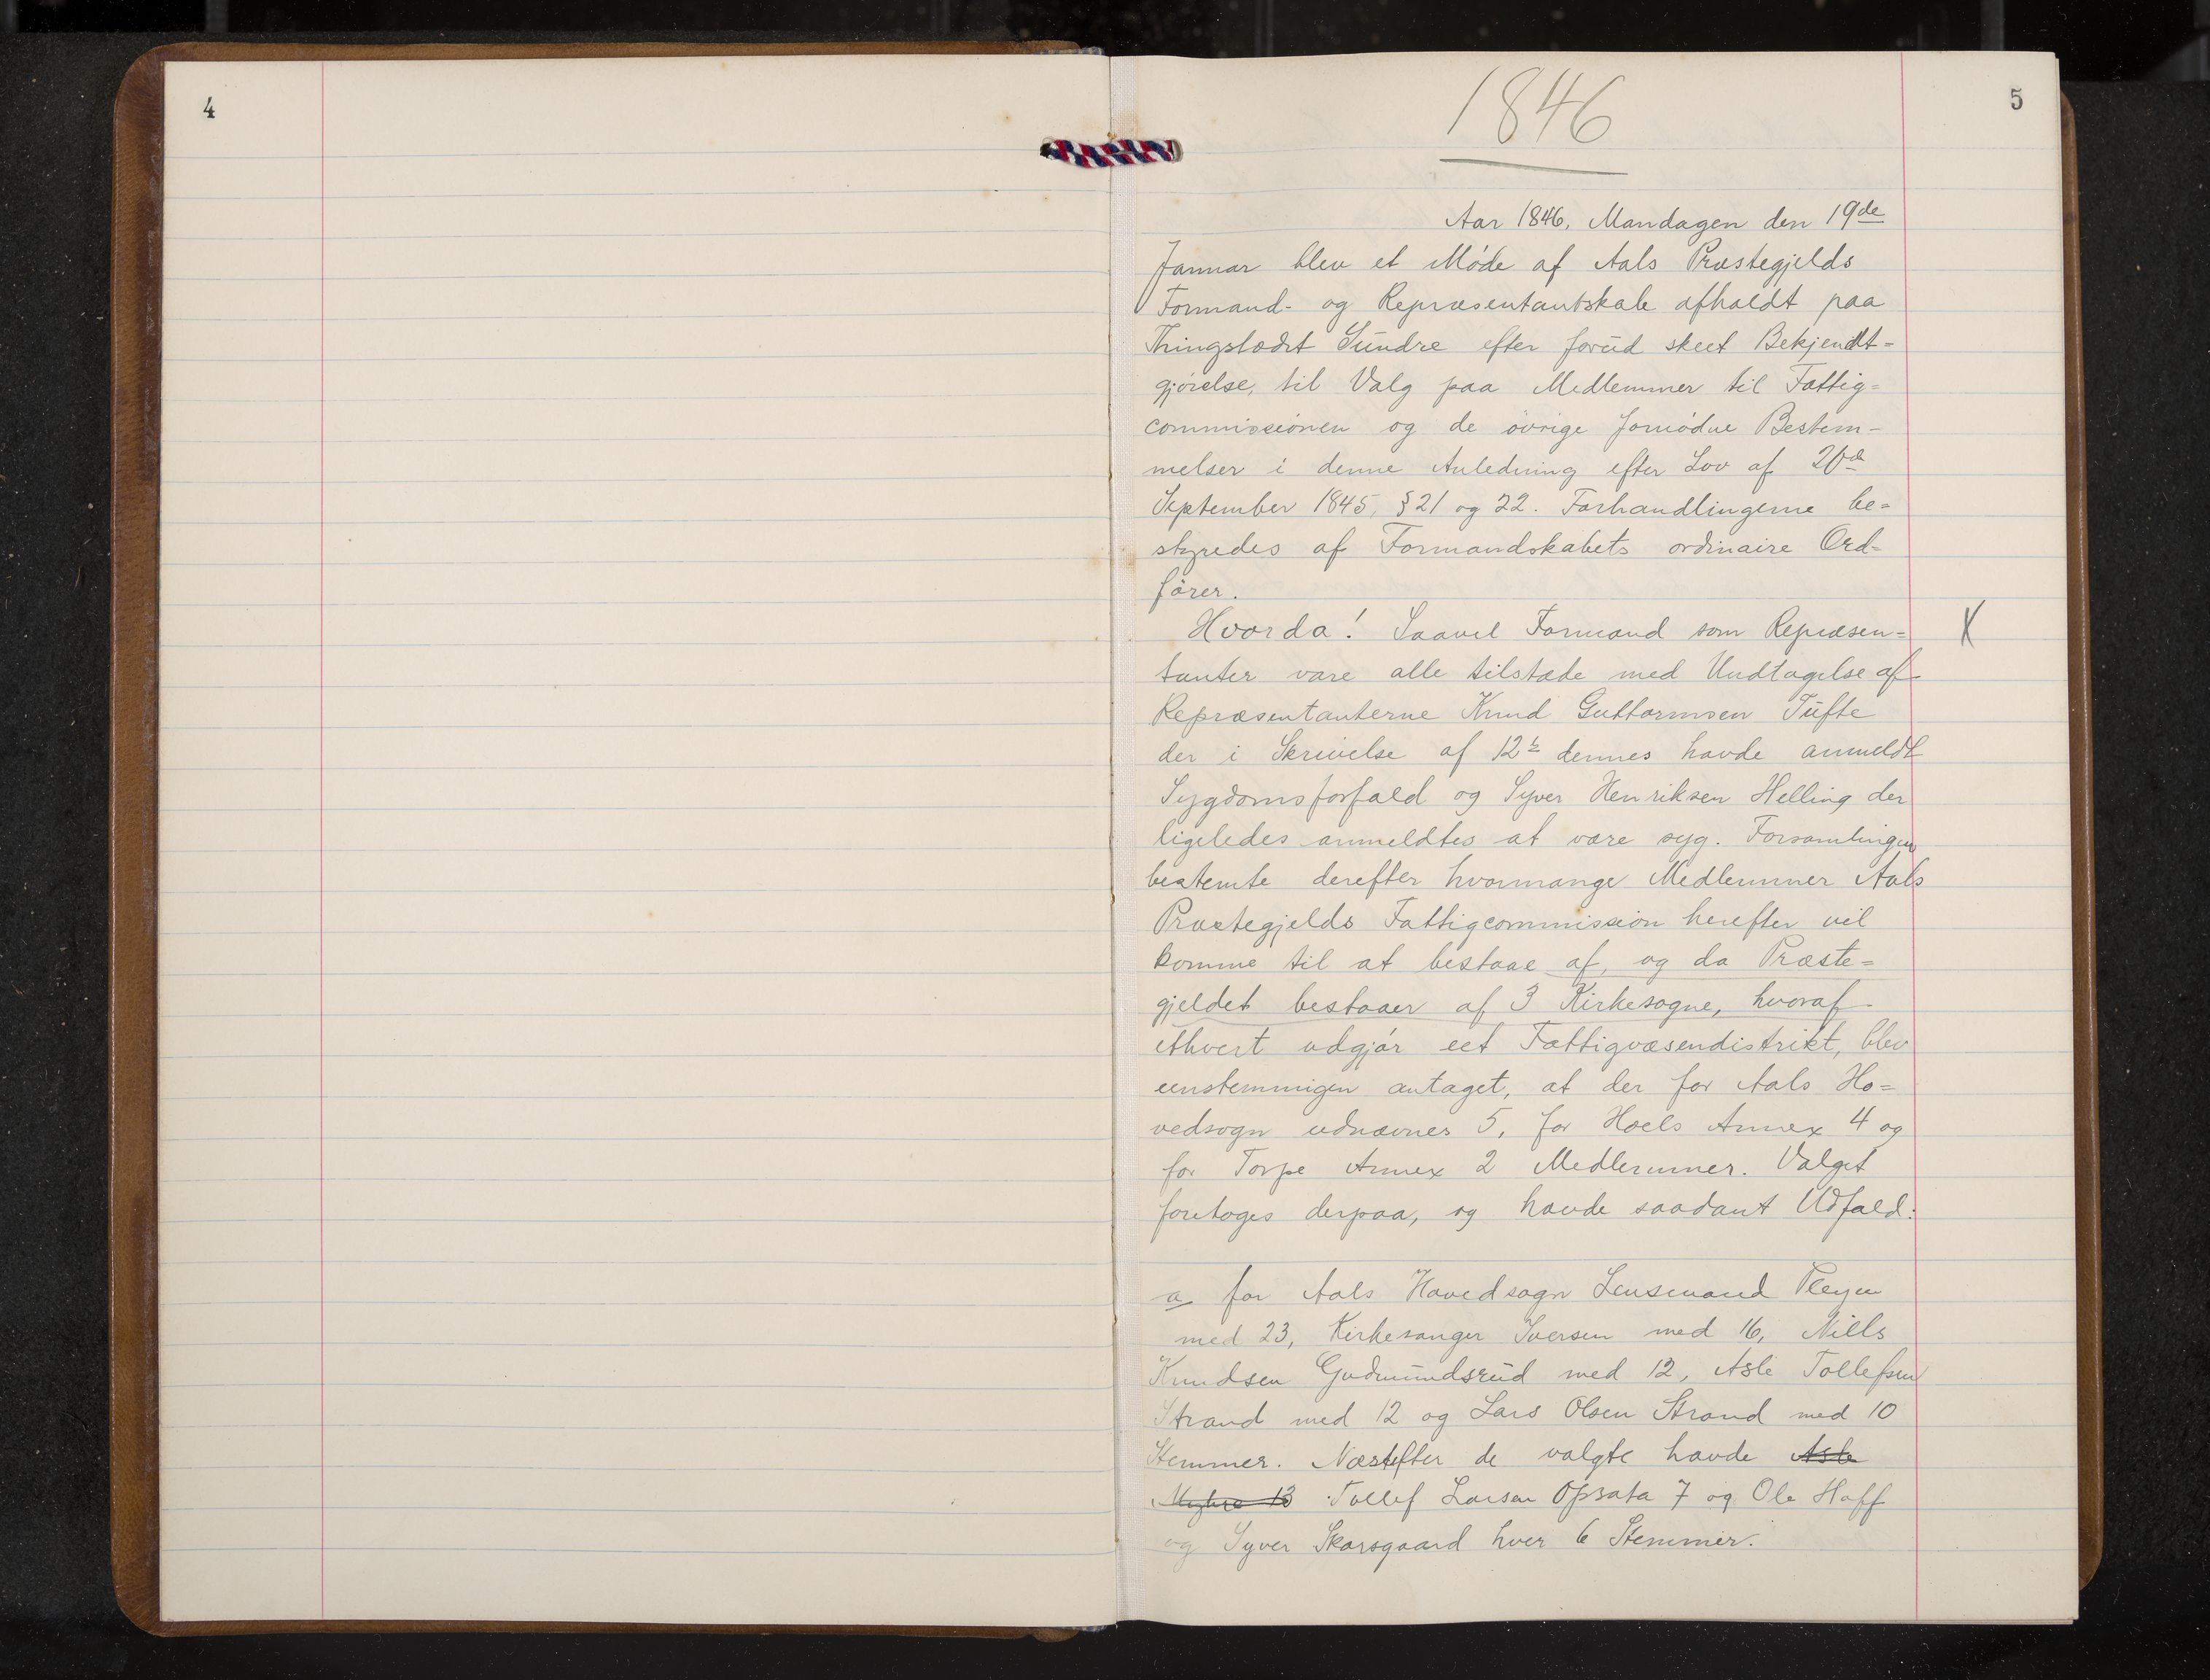 4
5
1846
Aar 1846, Mandagen den 19de
Januar blev et Møde af Aals Præstegjelds
Formand- og Repræsentantskab afholdt paa
Thingstedet Sundre efter forud skeet Bekjendt-
gjørelse, til Valg paa Medlemmer til Fattig-
commissionen og de øvrige fornødne Bestem-
melser i denne Anledning efter Lov af 20de
September 1845, § 21 og 22. Forhandlingerne be-
styredes af Formandskabets ordinaire Ord-
fører.
Hvorda! Saavel Formænd som Repræsen-
X
tanter vare alle tilstæde med Undtagelse af
Repræsentanterne Knud Guttormsen Tufte
der i Skrivelse af 12te dennes havde anmeldt
Sygdomsforfald og Syver Henriksen Helling der
ligeledes anmeldtes at være syg. Forsamlingen
bestemte derefter hvormange Medlemmer Aals
Præstegjelds Fattigcommission herefter vil
komme til at bestaae af, og da Præste-
gjeldet bestaaer af 3 Kirkesogne, hvoraf
ethvert udgjør eet Fattigvæsendistrikt, blev
eenstemmigen antaget, at der for Aals Ho-
vedsogn udnævnes 5, for Hoels Annex 4 og
for Torpe Annex 2 Medlemmer. Valget
foretoges derpaa, og havde saadant Udfald:
a for Aals Hovedsogn Lensmand Pleym
med 23, Kirkesanger Iversen med 16, Niels
Knudsen Gudmundsrud med 12, Asle Tollefsen
Strand med 12 og Lars Olsen Strand med 10
Stemmer. Næstefter de valgte havde Asle
Myhre 13 Tollef Larsen Opsata 7 og Ole Hoff
og Syver Skarsgaard hver 6 Stemmer.